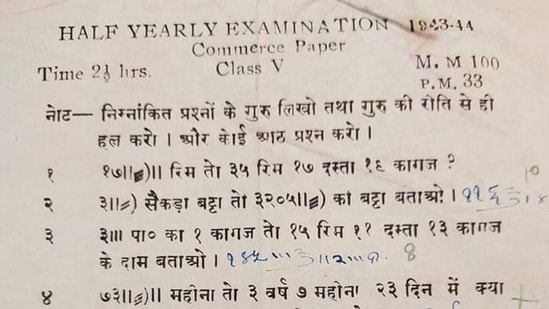 HALF YEARLY EXAMINATION 1943-44
Commerce Paper
Time 2½ hrs. Class V M. M 100
P.M. 33
नोट— निम्नांकित प्रश्नों के गुरु लिखो तथा गुरु की रीति से ही
हल करो । और कोई आठ प्रश्न करो ।
१ १७॥=)॥ रिम तो ३५ रिम १७ दस्ता १६ कागज ?
२ ३॥=) सैकड़ा बट्टा तो ३२०५॥=) का बट्टा बताओ ।
३ ३॥। पा० का १ कागज तो १५ रिम ११ दस्ता १३ कागज
के दाम बताओ । 8
४ ७३॥=)॥ महीना तो ३ वर्ष ७ महीना २३ दिन में क्या